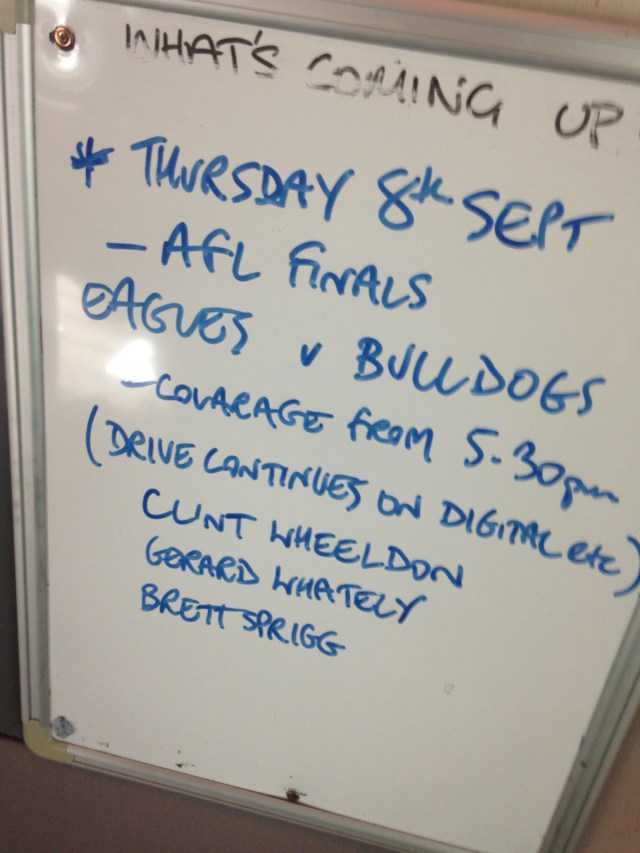 WHAT'S COMING UP
* THURSDAY 8th SEPT
- AFL FINALS
EAGLES v BULLDOGS
- COVARAGE FROM 5.30pm
(DRIVE CONTINUES ON DIGITAL etc)
CLINT WHEELDON
GERARD WHATELY
BRETT SPRIGG